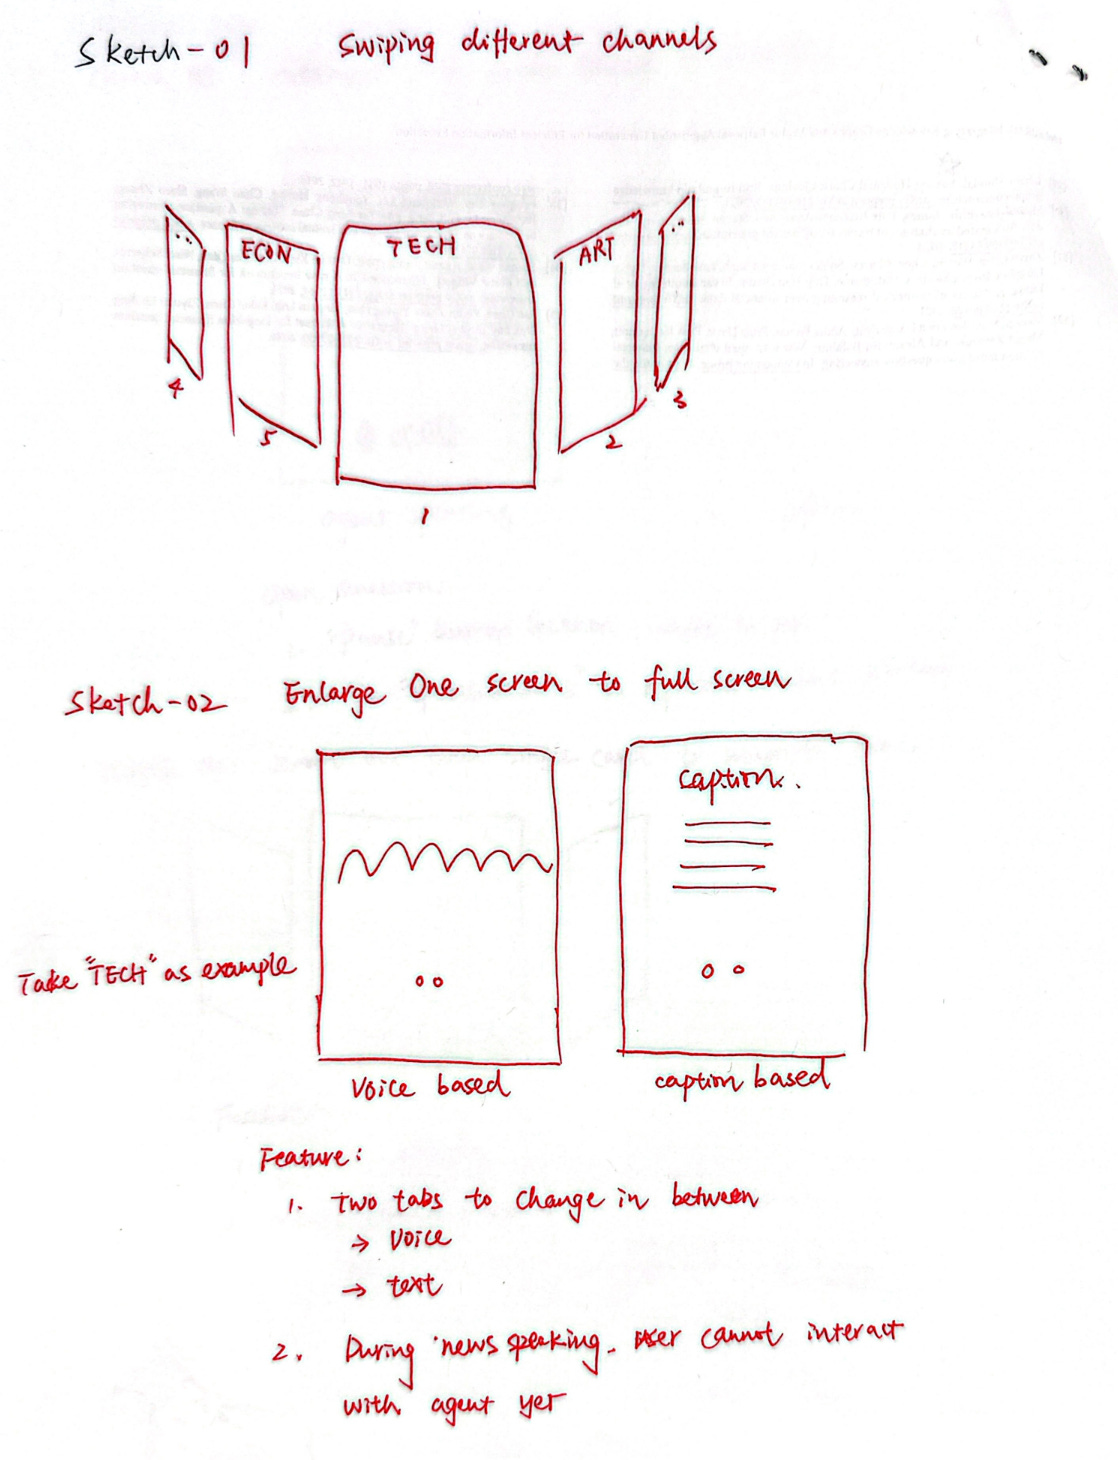 Sketch-01 Swiping different channels
... ECON TECH ART ...
4 5 1 2 3
Sketch-02 Enlarge One screen to full screen
caption.
Take "TECH" as example
Voice based caption based
Feature:
1. Two tabs to change in between
→ Voice
→ text
2. During news speaking. user cannot interact
with agent yet